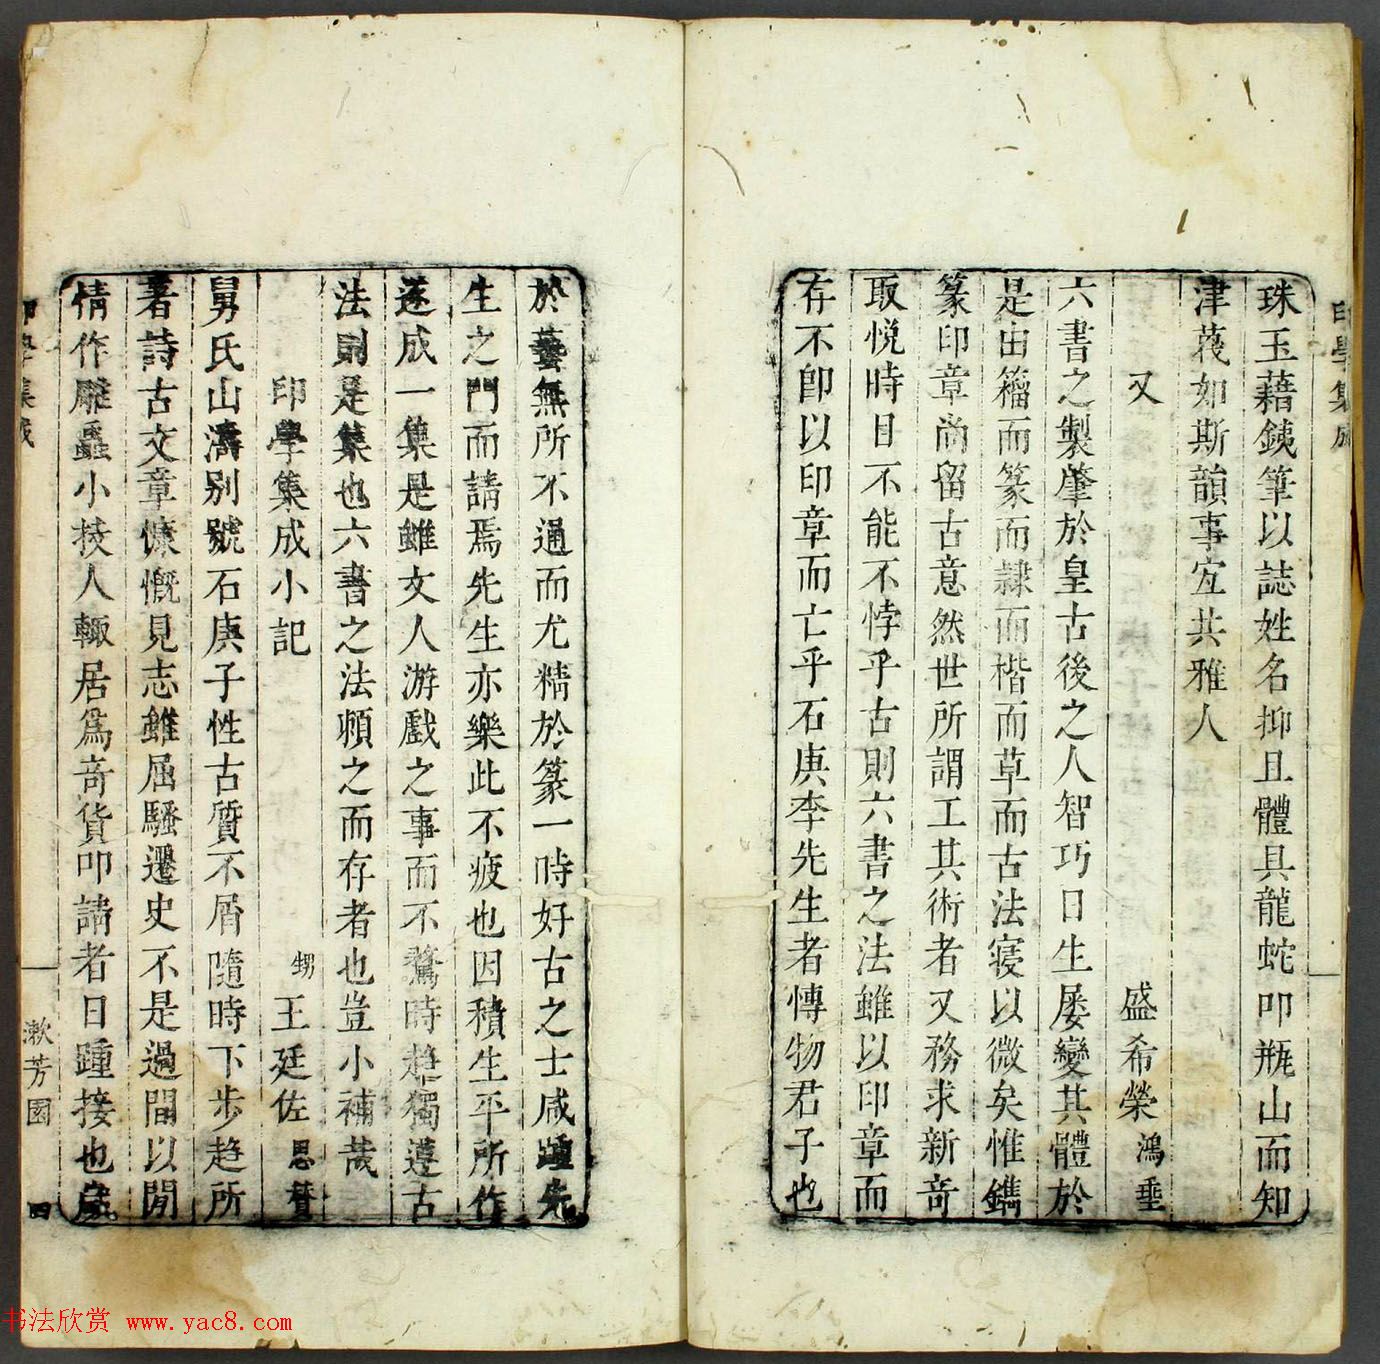 珠玉藉銕筆以誌姓名抑且體具龍蛇叩瓶山而知
津茂如斯韻事宐共雅人
又
盛希榮鴻垂
六書之製肇於皇古後之人智巧日生屡變其體於
是由籀而篆而隷而楷而草而古法寝以微矣惟鐫
篆印章尚留古意然世所謂工其術者又務求新竒
取悦時目不能不悖乎古則六書之法雖以印章而
存不卽以印章而亡乎石庚李先生者愽物君子也
於藝無所不通而尤精於篆一時好古之士咸踵先
生之門而請焉先生亦樂此不疲也因積生平所作
遂成一集是雖文人游戲之事而不驚時趋獨遵古
法則是集也六書之法頼之而存者也豈小補哉
印學集成小記
甥王廷佐思賛
舅氏山濤别號石庚子性古質不屑隨時下步趋所
著詩古文章慷慨見志雖屈騷遷史不是過間以閒
情作雕蟲小技人輙居爲竒貨叩請者日踵接也
印學集成
漱芳園
四
书法欣赏 www.yac8.com